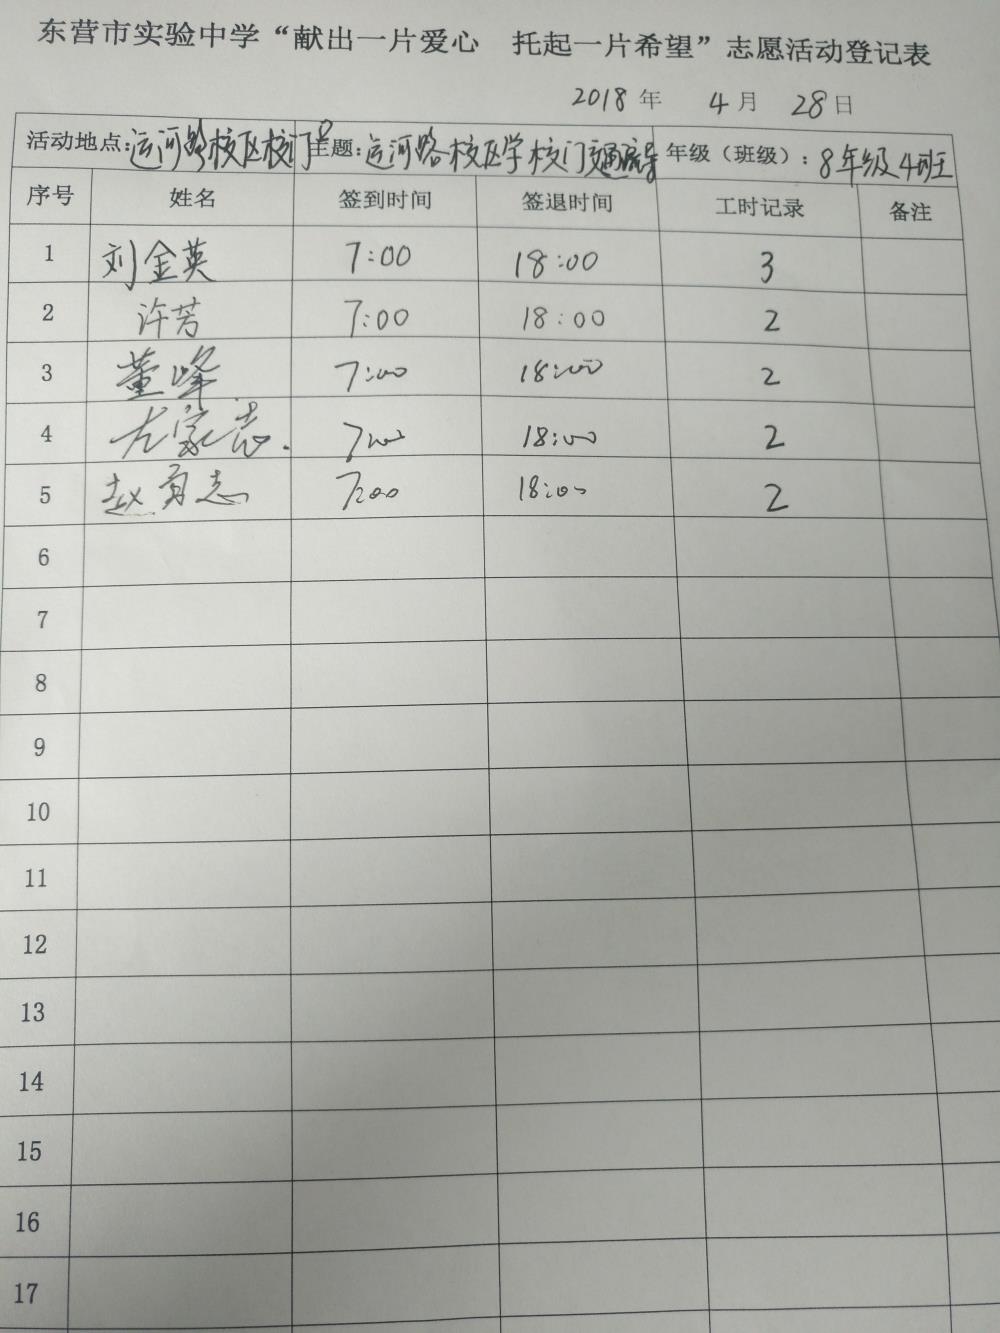 东营市实验中学“献出一片爱心 托起一片希望”志愿活动登记表
2018年 4月 28日
活动地点：运河路校区校门口 主题：运河路校区学校门交通疏导 年级（班级）：8年级4班
序号 姓名 签到时间 签退时间 工时记录 备注
1 刘金英 7:00 18:00 3
2 许芳 7:00 18:00 2
3 董峰 7:00 18:00 2
4 7:00 18:00 2
5 赵勇志 7:00 18:00 2
6
7
8
9
10
11
12
13
14
15
16
17